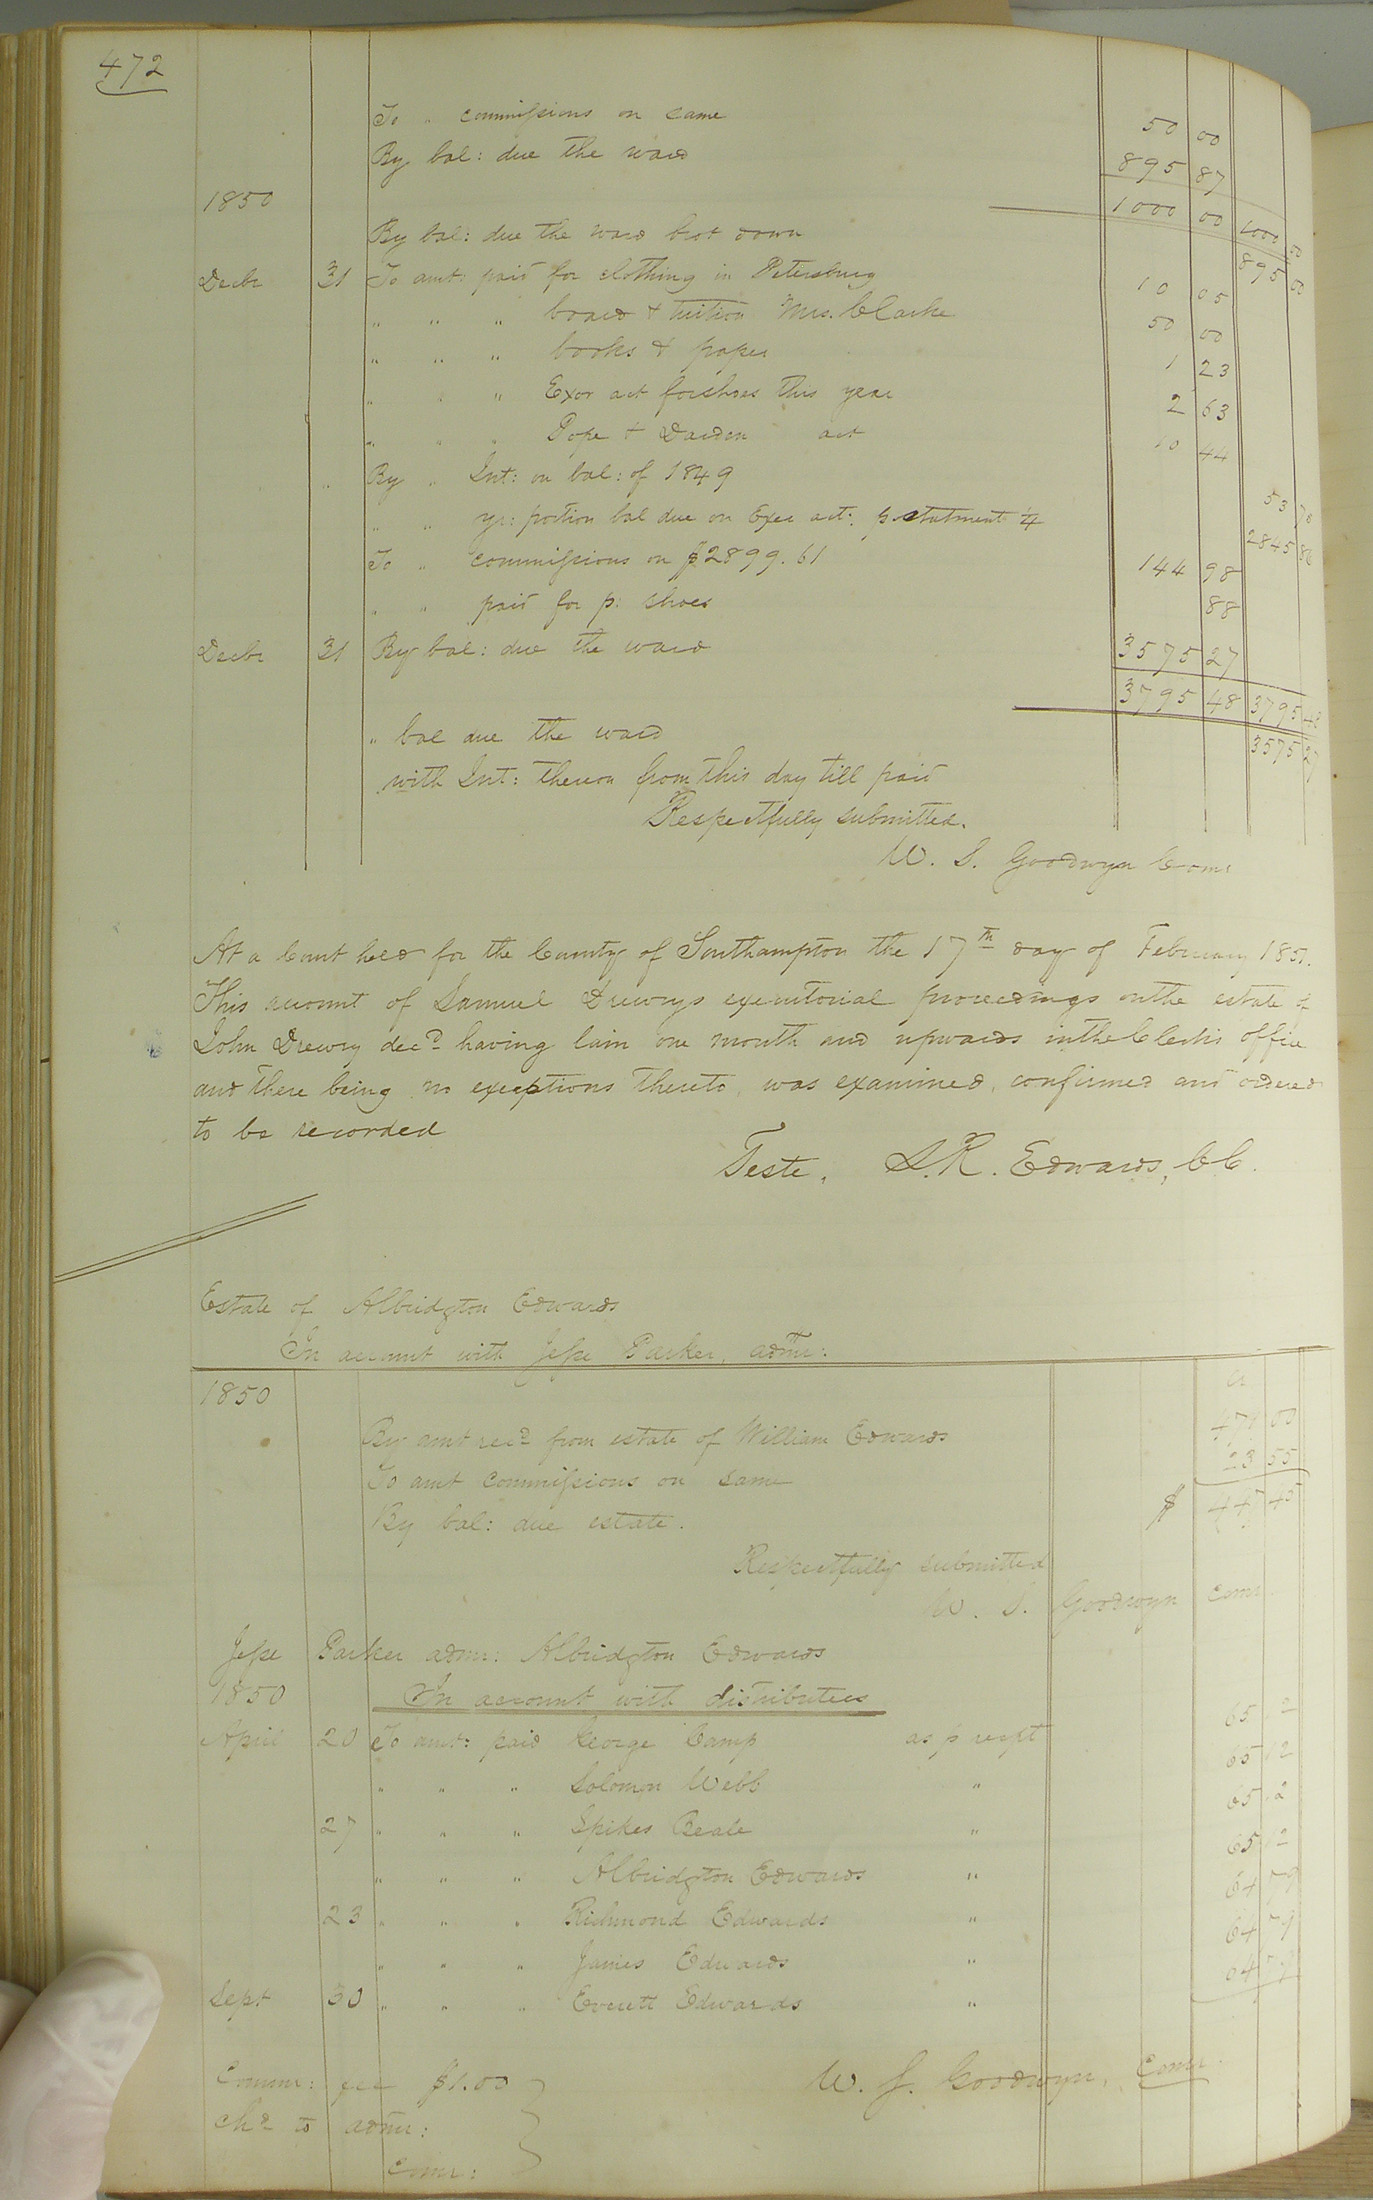 472
To " commissions on same 50 00
By bal: due the ward 895 87
1850 1000 00 1000 00
By bal: due the ward brot down 895 00
Decbr 31 To amt: paid for clothing in Petersburg 10 05
" " " board & tuition Mrs. Clarke 50 00
" " " books & paper 1 23
" " " Exor act for shoes this year 2 63
" " " Pope & Darden act 10 44
" By " Int: on bal: of 1849 53 75
" " yr: portion bal due on Exec act: p statement 4 2845 86
To " commissions on $2899.61 144 98
" " paid for p: shoes 88
Decbr 31 By bal: due the ward 3575 27
3795 48 3795 48
" bal due the ward 3575 27
with Int: thereon from this day till paid
Respectfully submitted.
W. S. Goodwyn Comr
At a Court held for the County of Southampton the 17th day of February 1851.
This account of Samuel Drewrys executorial proceedings on the estate of
John Drewry decd having lain one month and upwards in the Clerks office
and there being no exceptions thereto, was examined, confirmed and ordered
to be recorded
Teste, L. R. Edwards, CC.
Estate of Albridgton Edwards
In account with Jesse Parker, admr:
1850 Cr
By amt recd from estate of William Edwards 471 00
To amt commissions on same 23 55
By bal: due estate. $ 447 45
Respectfully submitted
W. S. Goodwyn Comr
Jesse Parker admr: Albridgton Edwards
1850 In account with distributees
April 20 To amt: paid George Camp as p recpt 65 12
" " " Solomon Webb " 65 12
27 " " " Spikes Beale " 65 12
" " " Albridgton Edwards " 65 12
23 " " " Richmond Edwards " 64 79
" " " James Edwards " 64 79
Sept 30 " " " Everett Edwards " 64 79
Commr: fee $1.00 W. S. Goodwyn, Comr.
Chd to admr:
Comr: